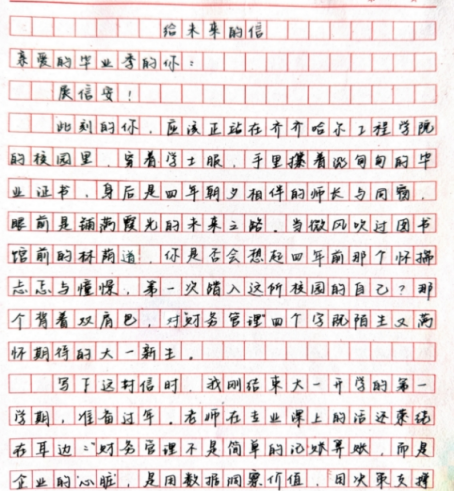 给未来的信
亲爱的毕业季的你：
展信安！
此刻的你，应该正站在齐齐哈尔工程学院
的校园里，穿着学士服，手里攥着沉甸甸的毕
业证书，身后是四年朝夕相伴的师长与同窗，
眼前是铺满霞光的未来之路。当微风吹过图书
馆前的林荫道，你是否会想起四年前那个怀揣
忐忑与憧憬，第一次踏入这所校园的自己？那
个背着双肩包，对"财务管理"四个字既陌生又满
怀期待的大一新生。
写下这封信时，我刚结束大一开学的第一
学期，准备过年。老师在专业课上的话还萦绕
在耳边："财务管理不是简单的记账算账，而是
企业的'心脏'，是用数据洞察价值，因决策支撑